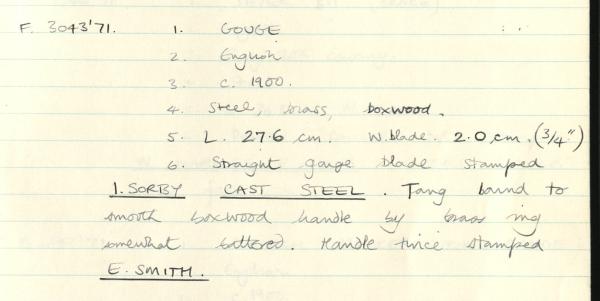 F. 3043'71. 1. GOUGE
2. English
3. c. 1900.
4. Steel, brass, boxwood.
5. L. 27.6 cm. W. blade. 2.0 cm. (3/4")
6. Straight gouge blade stamped
I. SORBY CAST STEEL. Tang bound to
smooth boxwood handle by brass ring
somewhat battered. Handle twice stamped
E. SMITH.